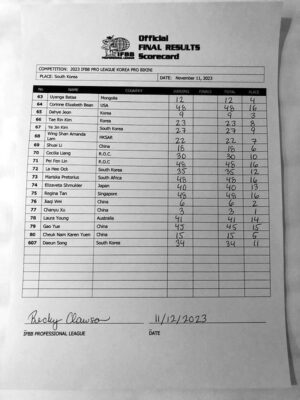 Official
FINAL RESULTS
Scorecard
IFBB
COMPETITION: 2023 IFBB PRO LEAGUE KOREA PRO BIKINI
PLACE: South Korea DATE: November 11, 2023
NO. NAME COUNTRY JUDGING FINALS TOTAL PLACE
63 Uyanga Bataa Mongolia 12 12 4
64 Corinne Elizabeth Bean USA 48 48 16
65 Dahye Jeon Korea 9 9 3
66 Tae Bin Kim Korea 23 23 8
67 Ye Jin Kim South Korea 27 27 9
68 Wing Shan Amanda Lam HKSAR 22 22 7
69 Shuai Li China 18 18 6
70 Cecilia Liang R.O.C 30 30 10
71 Pei Fen Lin R.O.C. 48 48 16
72 La Hee Ock South Korea 35 35 12
73 Mariska Pretorius South Africa 48 48 16
74 Elizaveta Shmuklier Japan 40 40 13
75 Regina Tan Singapore 48 48 16
76 Jiaqi Wei China 6 6 2
77 Chanyu Xu China 3 3 1
78 Laura Young Australia 41 41 14
79 Gao Yue China 45 45 15
80 Cheuk Nam Karen Yuen China 15 15 5
607 Daeun Song South Korea 34 34 11
Becky Clawson 11/12/2023
IFBB PROFESSIONAL LEAGUE DATE